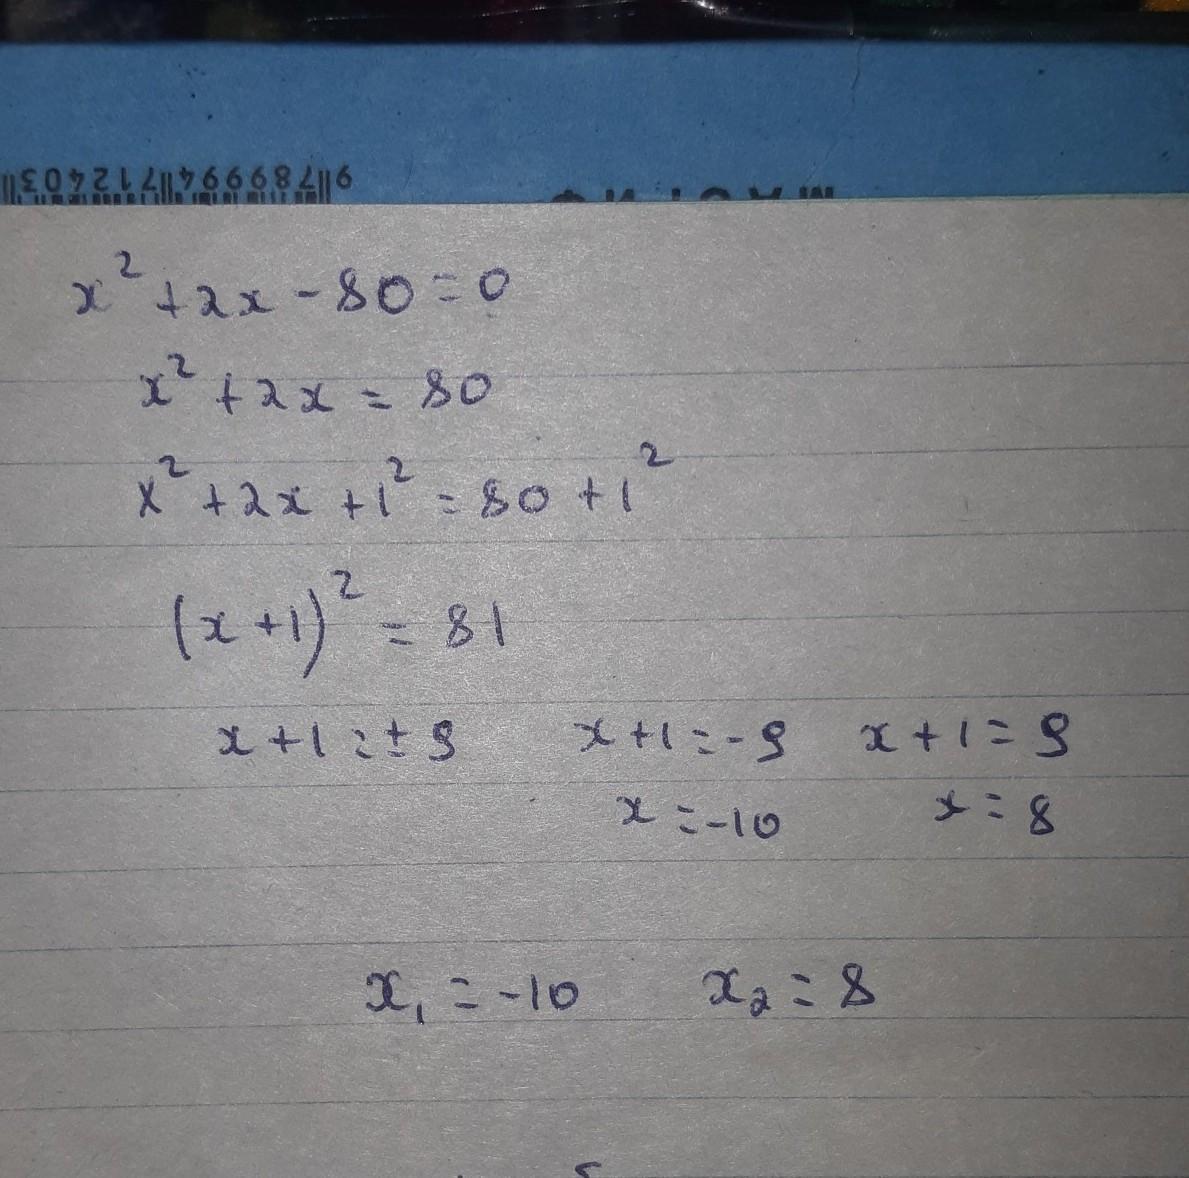 9 789994 712403
x² + 2x - 80 = 0
x² + 2x = 80
x² + 2x + 1² = 80 + 1²
(x + 1)² = 81
x + 1 = ± 9 x + 1 = -9 x + 1 = 9
x = -10 x = 8
x₁ = -10 x₂ = 8